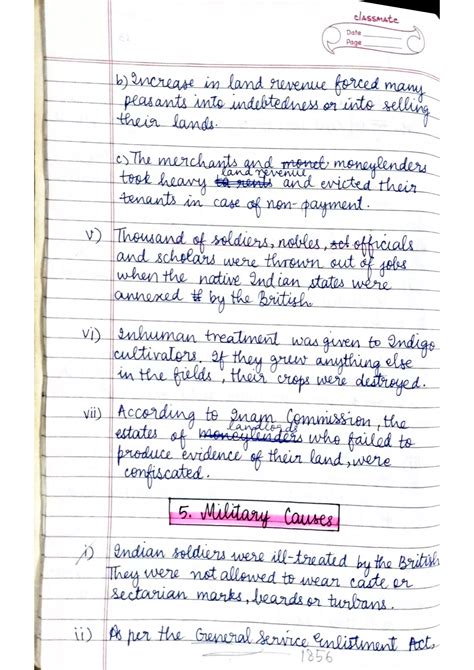 classmate
Date
Page
b) Increase in land revenue forced many
peasants into indebtedness or into selling
their lands.
c) The merchants and moneylenders
land revenue
took heavy and evicted their
tenants in case of non-payment.
v) Thousand of soldiers, nobles, officials
and scholars were thrown out of jobs
when the native Indian states were
annexed by the British
vi) Inhuman treatment was given to Indigo
cultivators. If they grew anything else
in the fields, their crops were destroyed.
vii) According to Inam Commission, the
landlords
estates of moneylenders who failed to
produce evidence of their land, were
confiscated.
5. Military Causes
i) Indian soldiers were ill-treated by the British
They were not allowed to wear caste or
sectarian marks, beards or turbans.
ii) As per the General Service Enlistment Act,
1856